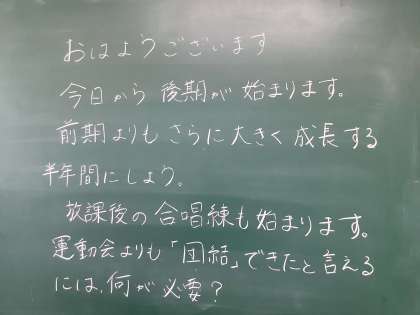 おはようございます
今日から後期が始まります。
前期よりもさらに大きく成長する
半年間にしよう。
放課後の合唱練も始まります。
運動会よりも「団結」できたと言える
には、何が必要?